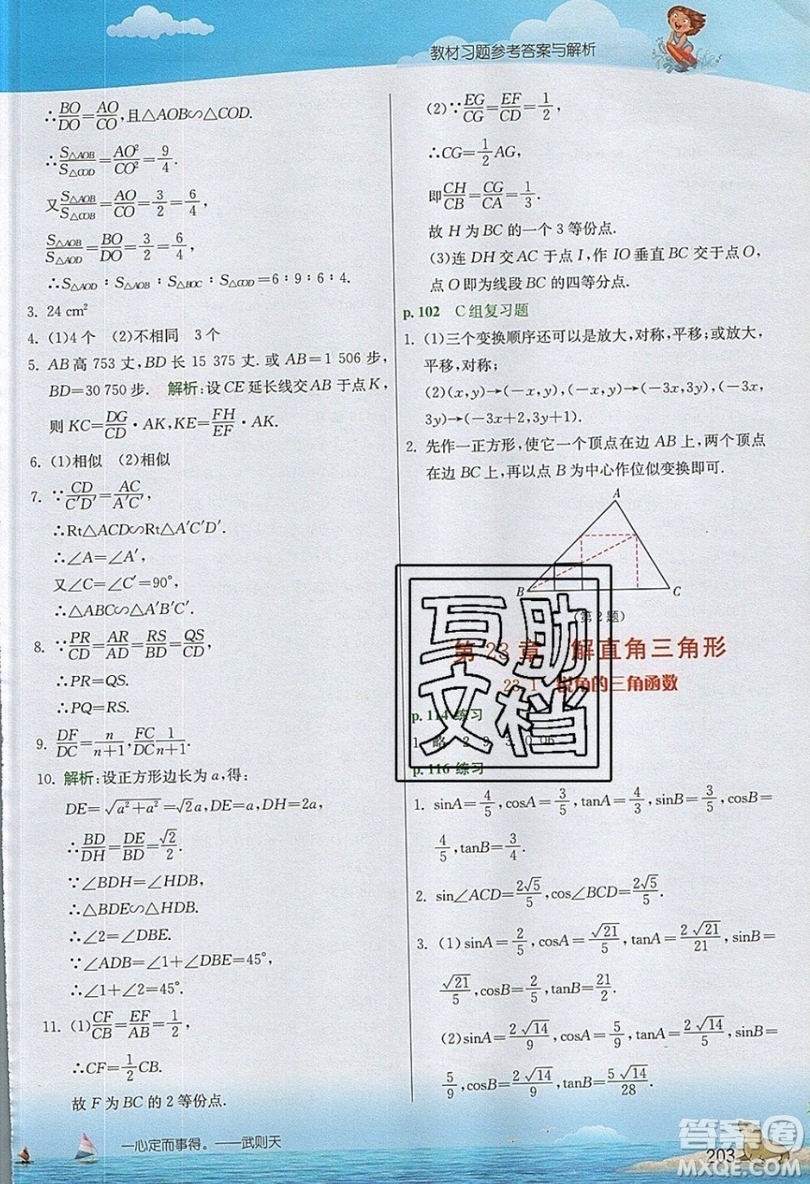 教材习题参考答案与解析
∴BO/DO=AO/CO,且△AOB∽△COD.
∴S△AOB/S△COD=AO²/CO²=9/4.
又S△AOB/S△COB=AO/CO=3/2=6/4,
S△AOB/S△AOD=BO/DO=3/2=6/4,
∴S△AOD∶S△AOB∶S△BOC∶S△COD=6∶9∶6∶4.
3. 24 cm²
4. (1)4个 (2)不相同 3个
5. AB高753丈,BD长15 375丈.或AB=1 506步,
BD=30 750步. 解析:设CE延长线交AB于点K,
则KC=DG/CD·AK,KE=FH/EF·AK.
6. (1)相似 (2)相似
7. ∵CD/C′D′=AC/A′C′,
∴Rt△ACD∽Rt△A′C′D′.
∴∠A=∠A′.
又∠C=∠C′=90°,
∴△ABC∽△A′B′C′.
8. ∵PR/CD=AR/AD=RS/BD=QS/CD,
∴PR=QS.
∴PQ=RS.
9. DF/DC=n/n+1,FC/DC=1/n+1.
10. 解析:设正方形边长为a,得:
DE=√a²+a²=√2a,DE=DA,DH=2a.
∴BD/DH=DE/BD=√2/2.
∵∠BDH=∠HDB,
∴△BDE∽△HDB.
∴∠2=∠DBE.
∵∠ADB=∠1+∠DBE=45°,
∴∠1+∠2=45°.
11. (1)CF/CB=EF/AB=1/2,
∴CF=1/2CB.
故F为BC的2等份点.
(2)∵EG/CG=EF/CD=1/2,
∴CG=1/2AG,
即CH/CB=CG/CA=1/3.
故H为BC的一个3等份点.
(3)连DH交AC于点I,作IO垂直BC交于点O,
点O即为线段BC的四等分点.
p.102 C组复习题
1. (1)三个变换顺序还可以是放大,对称,平移;或放大,
平移,对称;
(2)(x,y)→(-x,y)→(-3x,3y),(-3x,
3y)→(-3x+2,3y+1).
2. 先作一正方形,使它一个顶点在边AB上,两个顶点
在边BC上,再以点B为中心作位似变换即可.
A
B
C
(第2题)
第23章 解直角三角形
23.1 锐角的三角函数
p.114 练习
p.116 练习
1. sinA=4/5,cosA=3/5,tanA=4/3,sinB=3/5,cosB=
4/5,tanB=3/4.
2. sin∠ACD=2√5/5,cos∠BCD=2√5/5.
3. (1)sinA=2/5,cosA=√21/5,tanA=2√21/21,sinB=
√21/5,cosB=2/5,tanB=√21/2.
(2)sinA=2√14/9,cosA=5/9,tanA=2√14/5,sinB=
5/9,cosB=2√14/9,tanB=5√14/28.
互助
文档
一心定而事得。——武则天
203
答案圈
MXQE.COM